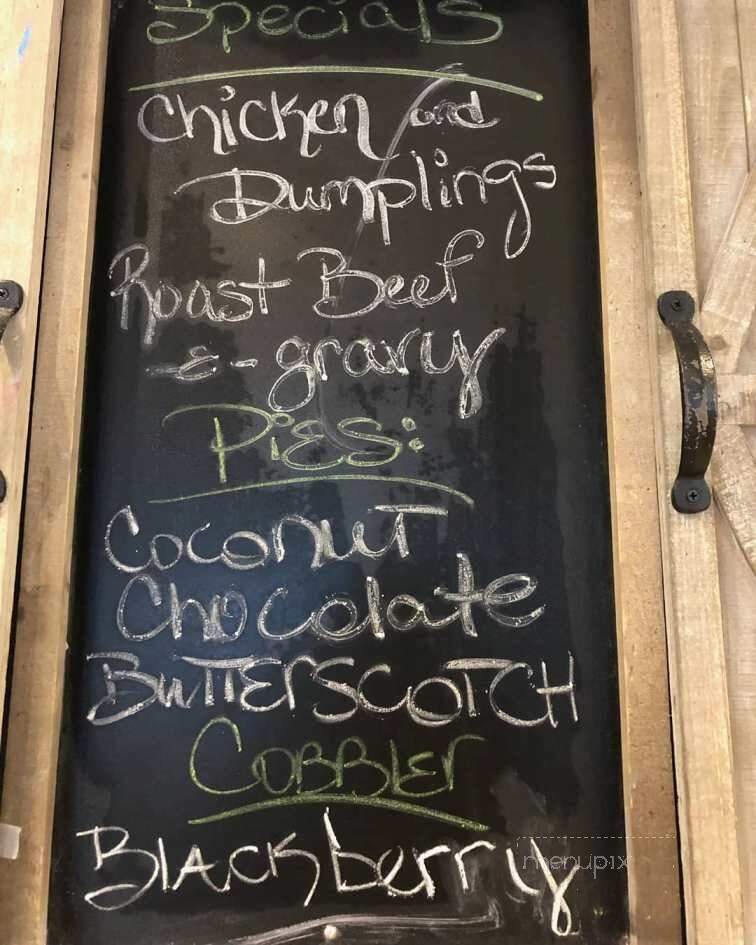 Specials
Chicken and
Dumplings
Roast Beef
-&- gravy
Pies:
Coconut
Chocolate
BuTTErSCOTCH
COBBLEr
BLACKberry
menupix